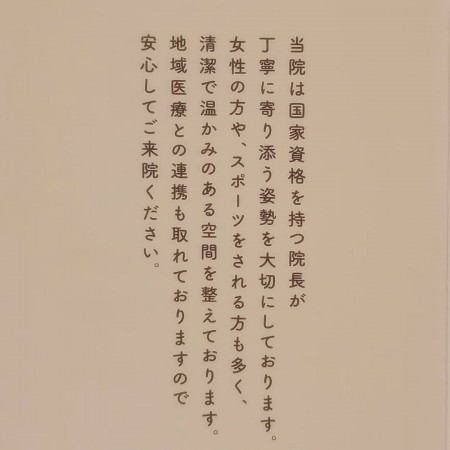 当院は国家資格を持つ院長が
丁寧に寄り添う姿勢を大切にしております。
女性の方や、スポーツをされる方も多く、
清潔で温かみのある空間を整えております。
地域医療との連携も取れておりますので
安心してご来院ください。